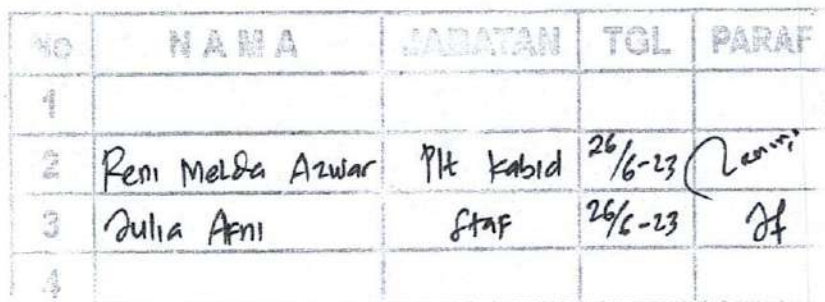 No NAMA JABATAN TGL PARAF
1
2 Reni Melda Azwar Plt Kabid 26/6-23
3 Julia Afni Staf 26/6-23
4